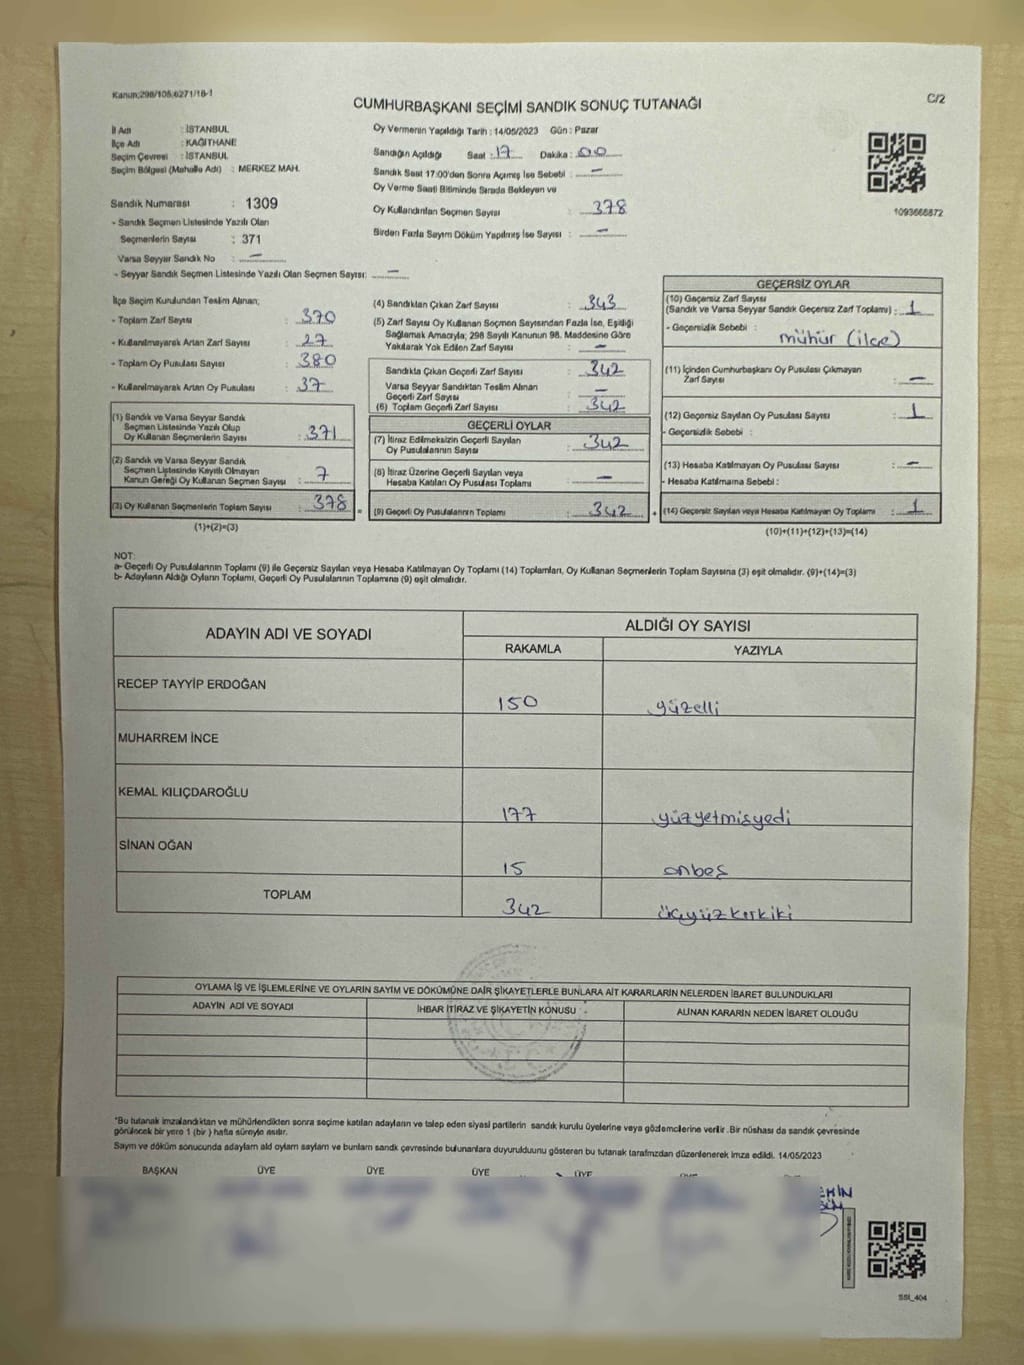 Kanun;298/105;6271/16-1
CUMHURBAŞKANI SEÇİMİ SANDIK SONUÇ TUTANAĞI
C/2
İl Adı : İSTANBUL
İlçe Adı : KAĞITHANE
Seçim Çevresi : İSTANBUL
Seçim Bölgesi (Mahalle Adı) : MERKEZ MAH.
Sandık Numarası : 1309
- Sandık Seçmen Listesinde Yazılı Olan
Seçmenlerin Sayısı : 371
Varsa Seyyar Sandık No : —
- Seyyar Sandık Seçmen Listesinde Yazılı Olan Seçmen Sayısı: —
Oy Vermenin Yapıldığı Tarih : 14/05/2023 Gün : Pazar
Sandığın Açıldığı Saat : 17 Dakika : 00
Sandık Saat 17:00'den Sonra Açımış İse Sebebi : —
Oy Verme Saati Bitiminde Sırada Bekleyen ve
Oy Kullandırılan Seçmen Sayısı : 378
Birden Fazla Sayım Döküm Yapılmış İse Sayısı : —
1093666872
İlçe Seçim Kurulundan Teslim Alınan;
- Toplam Zarf Sayısı : 370
- Kullanılmayarak Artan Zarf Sayısı : 27
- Toplam Oy Pusulası Sayısı : 380
- Kullanılmayarak Artan Oy Pusulası : 37
(1) Sandık ve Varsa Seyyar Sandık
Seçmen Listesinde Yazılı Olup
Oy Kullanan Seçmenlerin Sayısı : 371
(2) Sandık ve Varsa Seyyar Sandık
Seçmen Listesinde Kayıtlı Olmayan
Kanun Gereği Oy Kullanan Seçmen Sayısı : 7
(3) Oy Kullanan Seçmenlerin Toplam Sayısı : 378
(1)+(2)=(3)
(4) Sandıktan Çıkan Zarf Sayısı : 343
(5) Zarf Sayısı Oy Kullanan Seçmen Sayısından Fazla İse, Eşitliği
Sağlamak Amacıyla; 298 Sayılı Kanunun 98. Maddesine Göre
Yakılarak Yok Edilen Zarf Sayısı : —
Sandıkta Çıkan Geçerli Zarf Sayısı : 342
Varsa Seyyar Sandıktan Teslim Alınan
Geçerli Zarf Sayısı : —
(6) Toplam Geçerli Zarf Sayısı : 342
GEÇERLİ OYLAR
(7) İtiraz Edilmeksizin Geçerli Sayılan
Oy Pusulalarının Sayısı : 342
(8) İtiraz Üzerine Geçerli Sayılan veya
Hesaba Katılan Oy Pusulası Toplamı : —
(9) Geçerli Oy Pusulalarının Toplamı : 342
GEÇERSİZ OYLAR
(10) Geçersiz Zarf Sayısı
(Sandık ve Varsa Seyyar Sandık Geçersiz Zarf Toplamı) : 1
- Geçersizlik Sebebi :
mühür (ilçe)
(11) İçinden Cumhurbaşkanı Oy Pusulası Çıkmayan
Zarf Sayısı : —
(12) Geçersiz Sayılan Oy Pusulası Sayısı : 1
- Geçersizlik Sebebi :
(13) Hesaba Katılmayan Oy Pusulası Sayısı : —
- Hesaba Katılmama Sebebi :
(14) Geçersiz Sayılan veya Hesaba Katılmayan Oy Toplamı : 1
(10)+(11)+(12)+(13)=(14)
NOT:
a- Geçerli Oy Pusulalarının Toplamı (9) ile Geçersiz Sayılan veya Hesaba Katılmayan Oy Toplamı (14) Toplamları, Oy Kullanan Seçmenlerin Toplam Sayısına (3) eşit olmalıdır. (9)+(14)=(3)
b- Adayların Aldığı Oyların Toplamı, Geçerli Oy Pusulalarının Toplamına (9) eşit olmalıdır.
ADAYIN ADI VE SOYADI ALDIĞI OY SAYISI
RAKAMLA YAZIYLA
RECEP TAYYİP ERDOĞAN 150 yüzelli
MUHARREM İNCE
KEMAL KILIÇDAROĞLU 177 yüzyetmişyedi
SİNAN OĞAN 15 onbeş
TOPLAM 342 üçyüzkırkiki
OYLAMA İŞ VE İŞLEMLERİNE VE OYLARIN SAYIM VE DÖKÜMÜNE DAİR ŞİKAYETLERLE BUNLARA AİT KARARLARIN NELERDEN İBARET BULUNDUKLARI
ADAYIN ADI VE SOYADI İHBAR İTİRAZ VE ŞİKAYETİN KONUSU ALINAN KARARIN NEDEN İBARET OLDUĞU
*Bu tutanak imzalandıktan ve mühürlendikten sonra seçime katılan adayların ve talep eden siyasi partilerin sandık kurulu üyelerine veya gözlemcilerine verilir .Bir nüshası da sandık çevresinde
görülecek bir yere 1 (bir ) hafta süreyle asılır.
Sayım ve döküm sonucunda adayların ald oyların sayların ve bunların sandk çevresinde bulunanlara duyurulduunu gösteren bu tutanak tarafmzdan düzenlenerek imza edildi. 14/05/2023
BAŞKAN ÜYE ÜYE ÜYE ÜYE
SSI_404